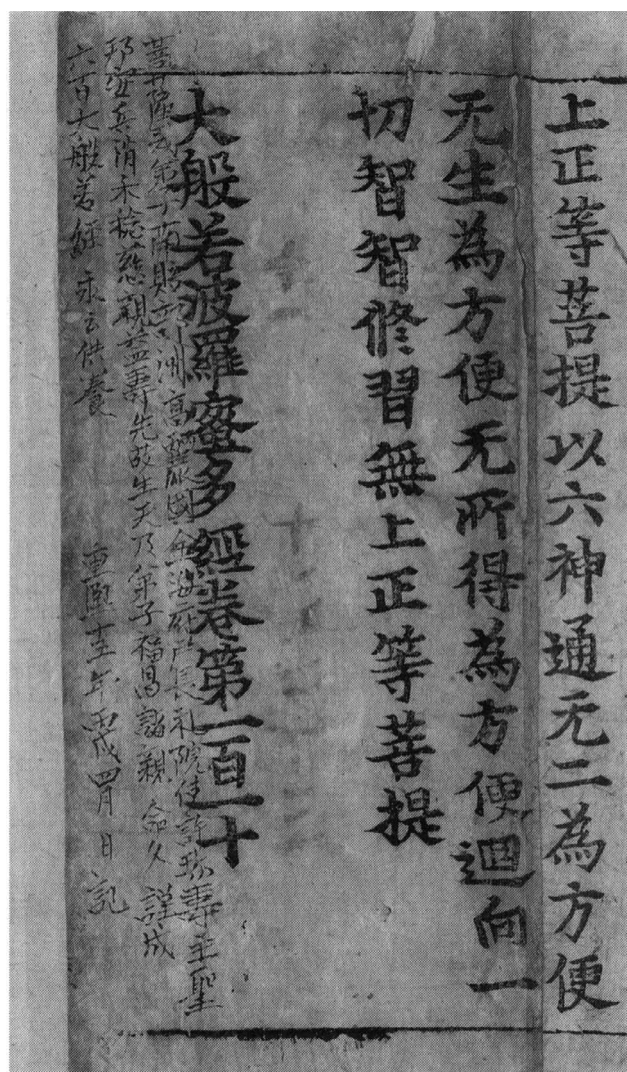 上正等菩提以六神通无二為方便
无生為方便无所得為方便迴向一
切智智修習無上正等菩提
大般若波羅蜜多經卷第一百一十
菩薩戒弟子南贍部洲高麗國金海府戶長礼院使許珍壽主聖
邦安兵消禾稔慈親益壽先故生天乃弟子福昌諸親命久謹成
六百大般若經永立供養 重熙十五年丙戌四月日記